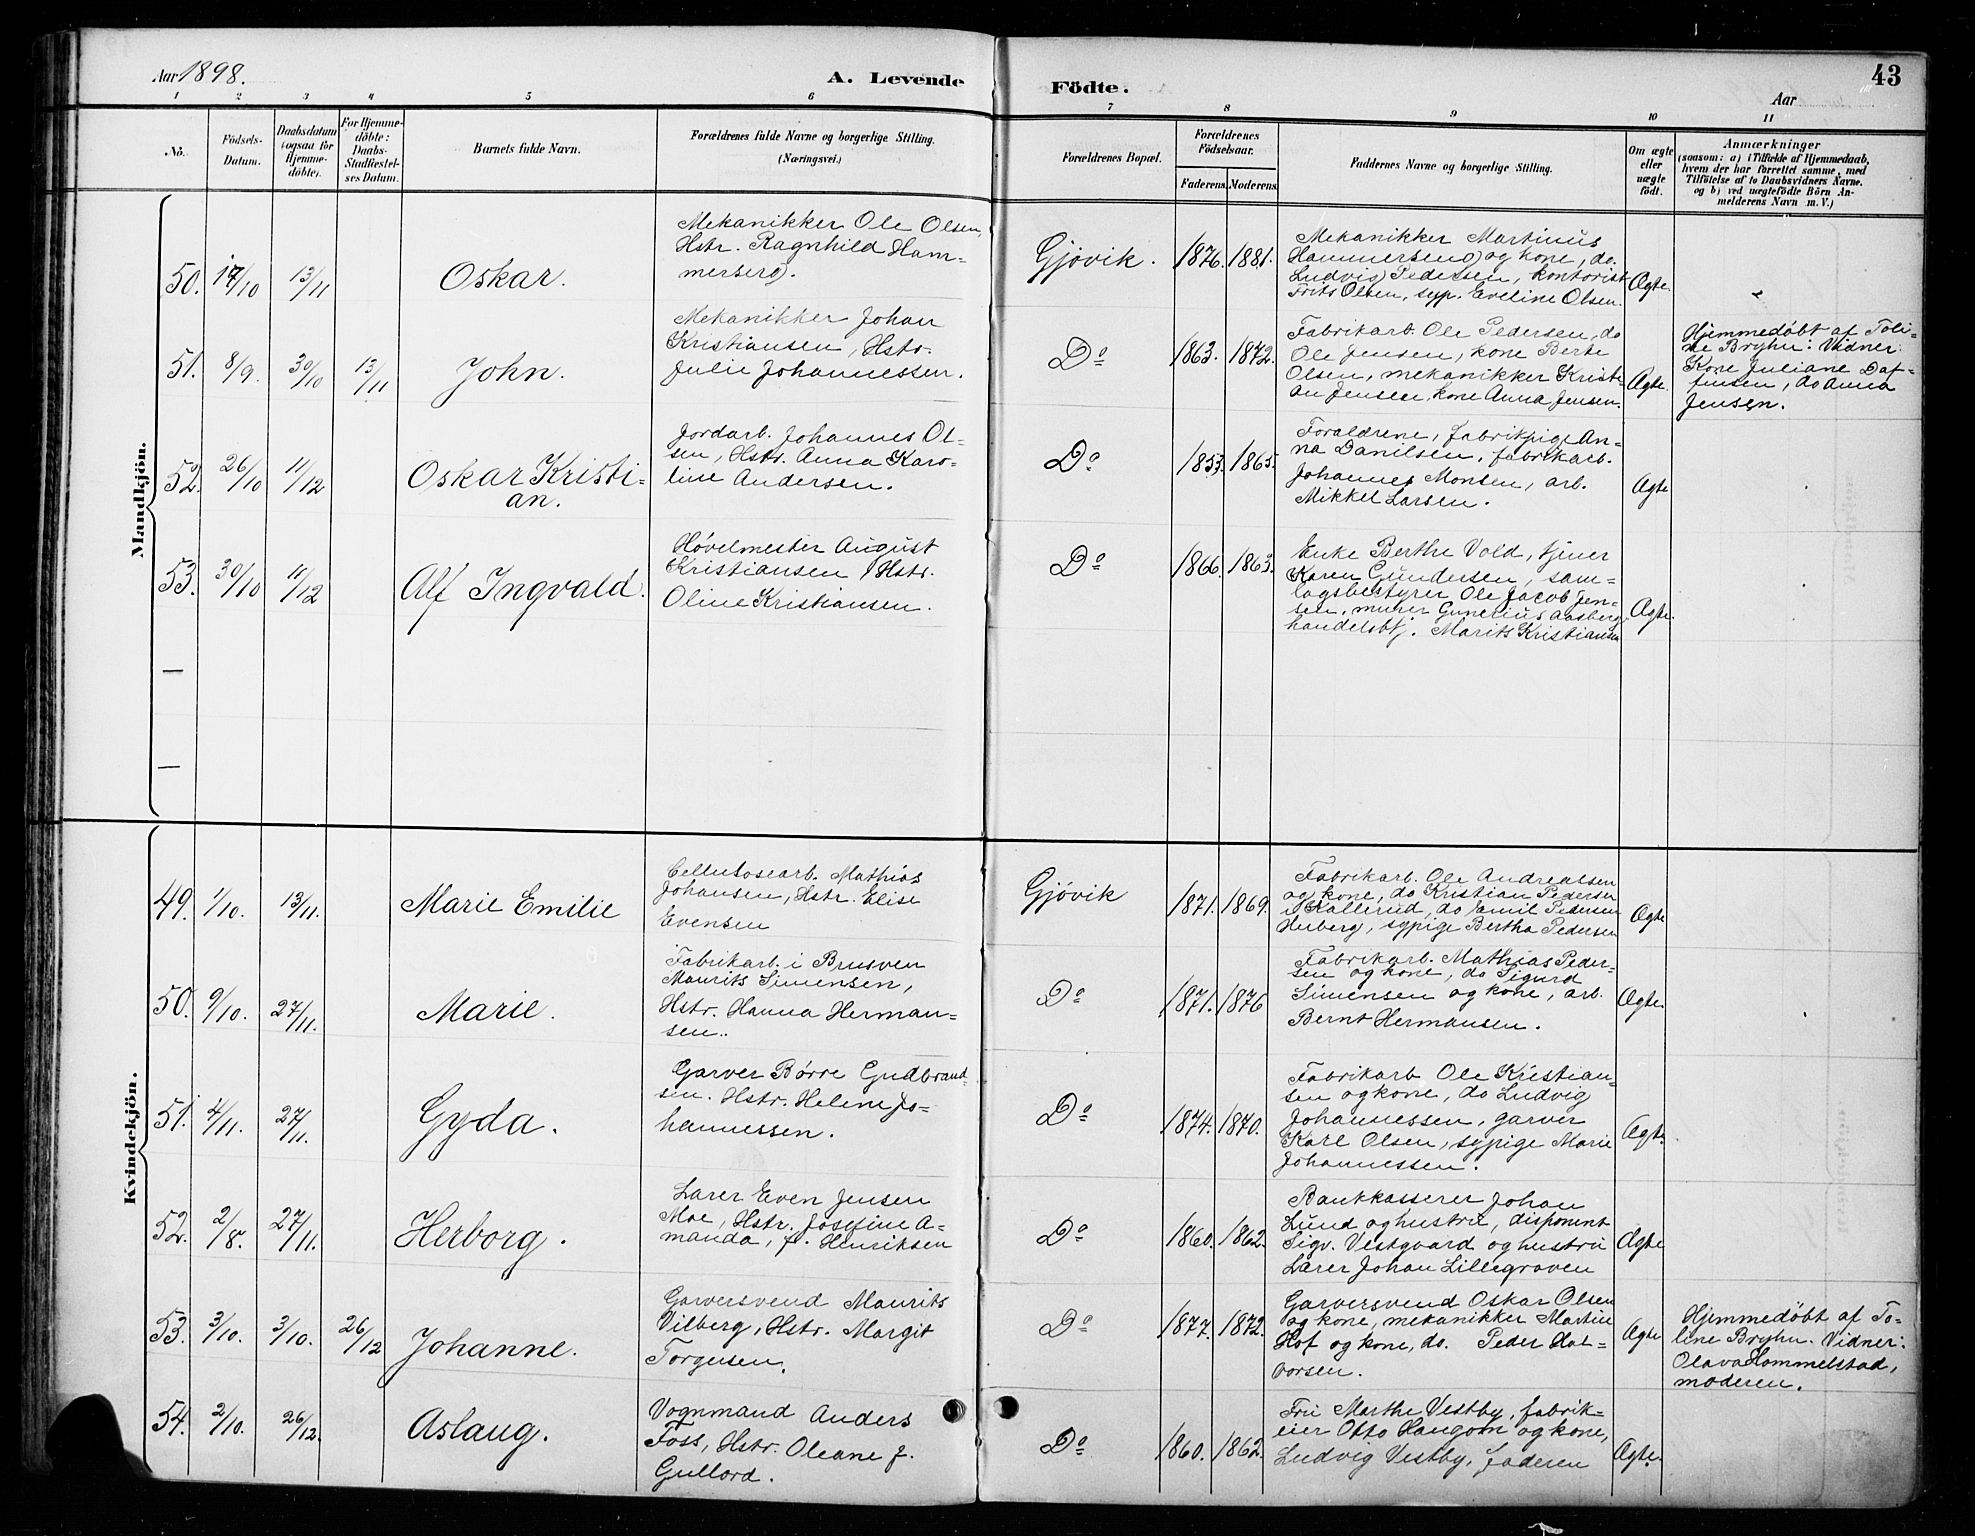 Aar 1898. A. Levende Födte. 43
Aar
1 2 3 4 5 6 7 8 9 10 11
No.
Födsels-
Datum.
Daabsdatum
(ogsaa for
Hjemme-
döbte).
For Hjemme-
döbte:
Daabs-
Stadfæstel-
ses Datum.
Barnets fulde Navn.
Forældrenes fulde Navne og borgerlige Stilling.
(Næringsvei.)
Forældrenes Bopæl.
Forældrenes
Födselsaar.
Faderens. Moderens.
Faddernes Navne og borgerlige Stilling.
Om ægte
eller
uægte
födt.
Anmærkninger
(saasom: a) i Tilfælde af Hjemmedaab,
hvem der har forrettet samme, med
Tilföielse af to Daabsvidners Navne,
og b) ved uægtefödte Börn An-
melderens Navn m. V.)
Mandkjön.
50. 17/10 13/11 Oskar.
Mekanikker Ole Olsen,
Hstr. Ragnhild Ham-
mersero).
Gjövik. 1876. 1881.
Mekanikker Martinus
Hammerseno) og kone, do.
Ludvig Pedersen, kontorist
Frits Olsen, syp. Eveline Olsen.
Ægte
51. 8/9. 30/10 13/11 John.
Mekanikker Johan
Kristiansen, Hstr.
Julie Johannessen.
Do 1863. 1872.
Fabrikarb. Ole Pedersen, do
Ole Jensen, kone Berte
Olsen, mekanikker Kristi-
an Jensen, kone Anna Jensen.
Ægte.
Hjemmedöbt af Toli-
ne Bryhn: Vidner:
Kone Juliane Daf-
finsen, do Anna
Jensen.
52. 26/10 11/12 Oskar Kristi-
an.
Jordarb. Johannes Ol-
sen, Hstr. Anna Karo-
line Andersen.
Do 1853. 1865.
Forældrene, fabrikpige An-
na Danilsen, fabrikarb.
Johannes Monsen, arb.
Mikkel Larsen.
Ægte
53. 30/10 11/12 Alf Ingvald.
Hövelmester August
Kristiansen, Hstr.
Oline Kristiansen.
Do 1866. 1863.
Enke Berthe Vold, tjener
Karen Gundersen, sam-
lagsbestyrer Ole Jacob Jen-
sen, murer Gunerius Aasberg,
handelsbtj. Marits Kristiansen
Ægte.
—
—
Kvindekjön.
49. 1/10. 13/11. Marie Emilie
Cellulosearb. Mathias
Johansen, Hstr. Elise
Evensen
Gjövik 1871. 1869.
Fabrikarb. Ole Andreassen
og kone, do Kristian Pedersen
i Kallerud, do Emil Pedersen
Herberg, sypige Bertha Pedersen
Ægte
50. 9/10. 27/11. Marie.
Fabrikarb. i Brusven
Maurits Simensen,
Hstr. Hanna Herman-
sen.
Do 1871. 1876
Fabrikarb. Mathias Peder-
sen og kone, do Sigurd
Simensen og kone, arb.
Bernt Hermansen.
Ægte.
51. 4/11. 27/11. Gyda.
Garver Börre Gudbrand-
sen. Hstr. Helene Jo-
hannessen.
Do 1874. 1870.
Fabrikarb Ole Kristian-
sen og kone, do Ludvig
Johannessen, garver
Karl Olsen, sypige Marie
Johannessen.
Ægte.
52. 2/8. 27/11. Herborg.
Lærer Even Jensen
Moe, Hstr. Josefine A-
manda, f. Henriksen
Do 1860. 1862.
Bankkasserer Johan
Lund og hustru, disponent
Sigv. Vestgaard og hustru
Lærer Johan Lillegraven
Ægte
53. 3/10. 3/10. 26/12 Johanne.
Garversvend Maurits
Vilberg, Hstr. Margit
Torgersen.
Do 1877. 1872.
Garversvend Oskar Olsen
og kone, mekanikker Martin
Hof og kone, do. Peder Hal-
vorsen.
Ægte
Hjemmedöbt af To-
line Bryhn. Vidner:
Olava Hommelstad,
moderen.
54. 2/10. 26/12. Aslaug.
Vognmand Anders
Foss, Hstr. Oleane f.
Gullord.
Do 1860. 1862.
Fru Marthe Vestby, fabrik-
eier Otto Haugom og kone,
Ludvig Vestby, faderen
Ægte.